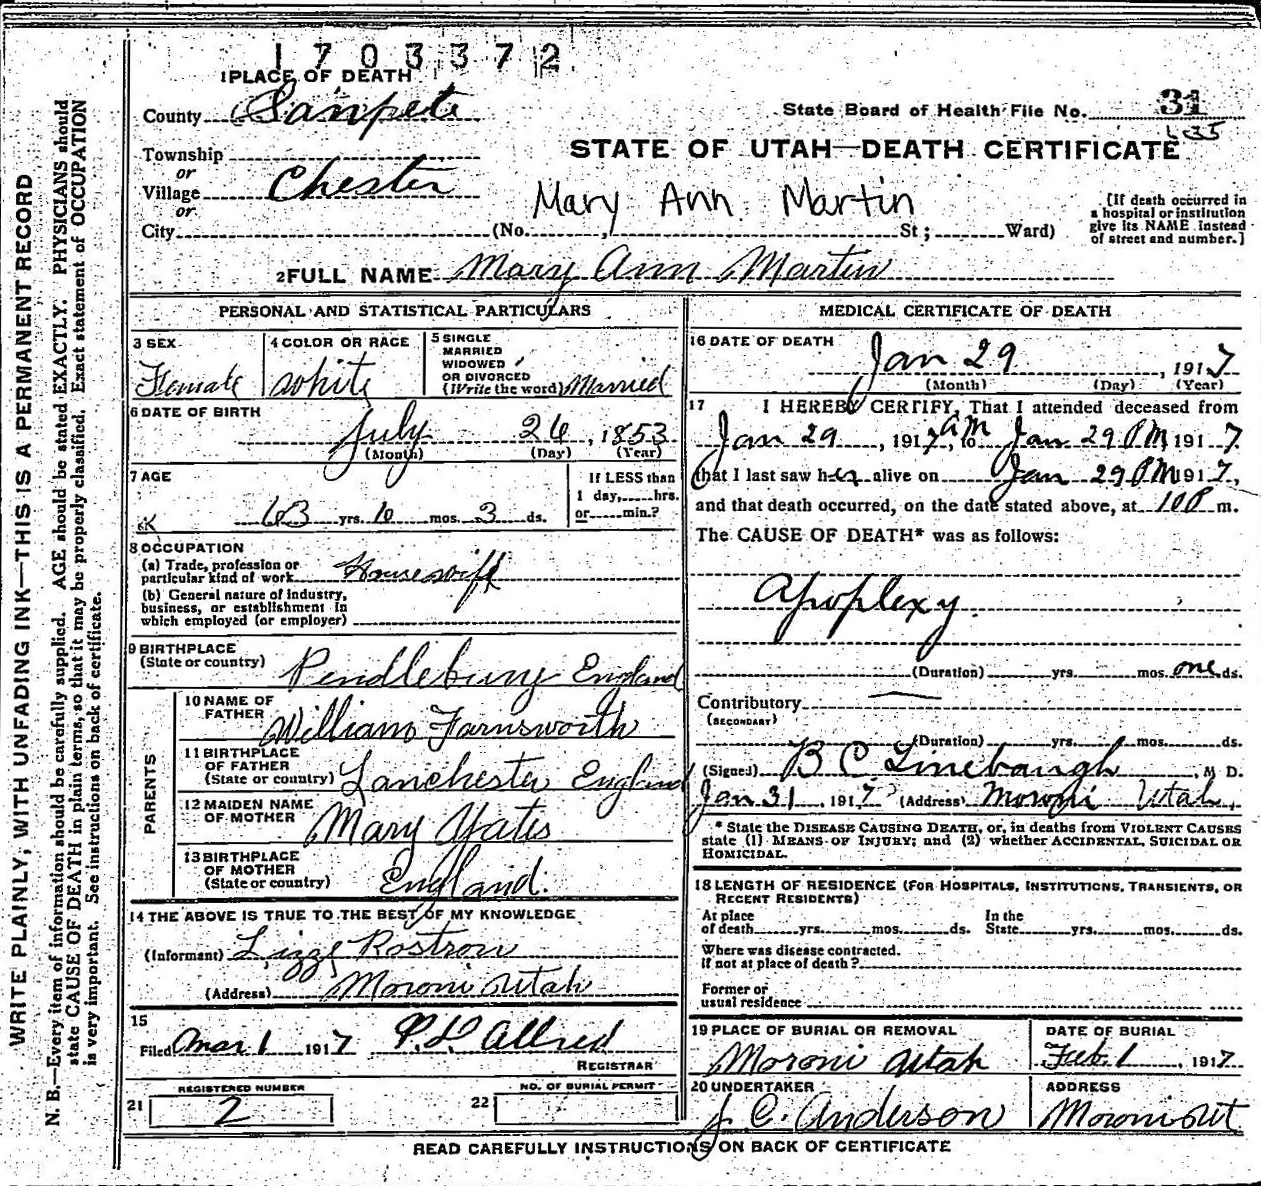 1703372
1 PLACE OF DEATH
County Sanpete
State Board of Health File No. 31
635
Township
or
Village Chester
or
City (No. St; Ward)
STATE OF UTAH—DEATH CERTIFICATE
Mary Ann Martin
[If death occurred in
a hospital or institution
give its NAME instead
of street and number.]
2 FULL NAME Mary Ann Martin
PERSONAL AND STATISTICAL PARTICULARS
3 SEX
Female
4 COLOR OR RACE
white
5 SINGLE
MARRIED
WIDOWED
OR DIVORCED
(Write the word) Married
6 DATE OF BIRTH
July 26, 1853
(Month) (Day) (Year)
7 AGE
63 yrs. 6 mos. 3 ds.
If LESS than
1 day, hrs.
or min.?
8 OCCUPATION
(a) Trade, profession or
particular kind of work Housewife
(b) General nature of industry,
business, or establishment in
which employed (or employer)
9 BIRTHPLACE
(State or country) Pendlebury England
PARENTS
10 NAME OF
FATHER
William Farnsworth
11 BIRTHPLACE
OF FATHER
(State or country) Lanchester England
12 MAIDEN NAME
OF MOTHER
Mary Yates
13 BIRTHPLACE
OF MOTHER
(State or country) England.
14 THE ABOVE IS TRUE TO THE BEST OF MY KNOWLEDGE
(Informant) Lizze Rostron
(Address) Moroni Utah
15
Filed Mar 1 1917 P. L. Allred
REGISTRAR
REGISTERED NUMBER
21 2
NO. OF BURIAL PERMIT
22
MEDICAL CERTIFICATE OF DEATH
16 DATE OF DEATH
Jan 29, 1917
(Month) (Day) (Year)
17 I HEREBY CERTIFY, That I attended deceased from
Jan 29, 1917 AM to Jan 29 PM 1917
that I last saw her alive on Jan 29 PM 1917,
and that death occurred, on the date stated above, at 10 P m.
The CAUSE OF DEATH* was as follows:
Apoplexy
(Duration) yrs. mos. one ds.
Contributory
(SECONDARY)
(Duration) yrs. mos. ds.
(Signed) B C Linebaugh, M D.
Jan 31, 1917 (Address) Moroni Utah,
* State the DISEASE CAUSING DEATH, or, in deaths from VIOLENT CAUSES
state (1) MEANS OF INJURY; and (2) whether ACCIDENTAL, SUICIDAL OR
HOMICIDAL.
18 LENGTH OF RESIDENCE (FOR HOSPITALS, INSTITUTIONS, TRANSIENTS, OR
RECENT RESIDENTS)
At place
of death yrs. mos. ds.
In the
State yrs. mos. ds.
Where was disease contracted.
If not at place of death?
Former or
usual residence
19 PLACE OF BURIAL OR REMOVAL
Moroni Utah
DATE OF BURIAL
Feb. 1, 1917
20 UNDERTAKER
J. C. Anderson
ADDRESS
Moroni Ut
READ CAREFULLY INSTRUCTIONS ON BACK OF CERTIFICATE
WRITE PLAINLY, WITH UNFADING INK—THIS IS A PERMANENT RECORD
N. B.—Every item of information should be carefully supplied. AGE should be stated EXACTLY. PHYSICIANS should
state CAUSE OF DEATH in plain terms, so that it may be properly classified. Exact statement of OCCUPATION
is very important. See instructions on back of certificate.